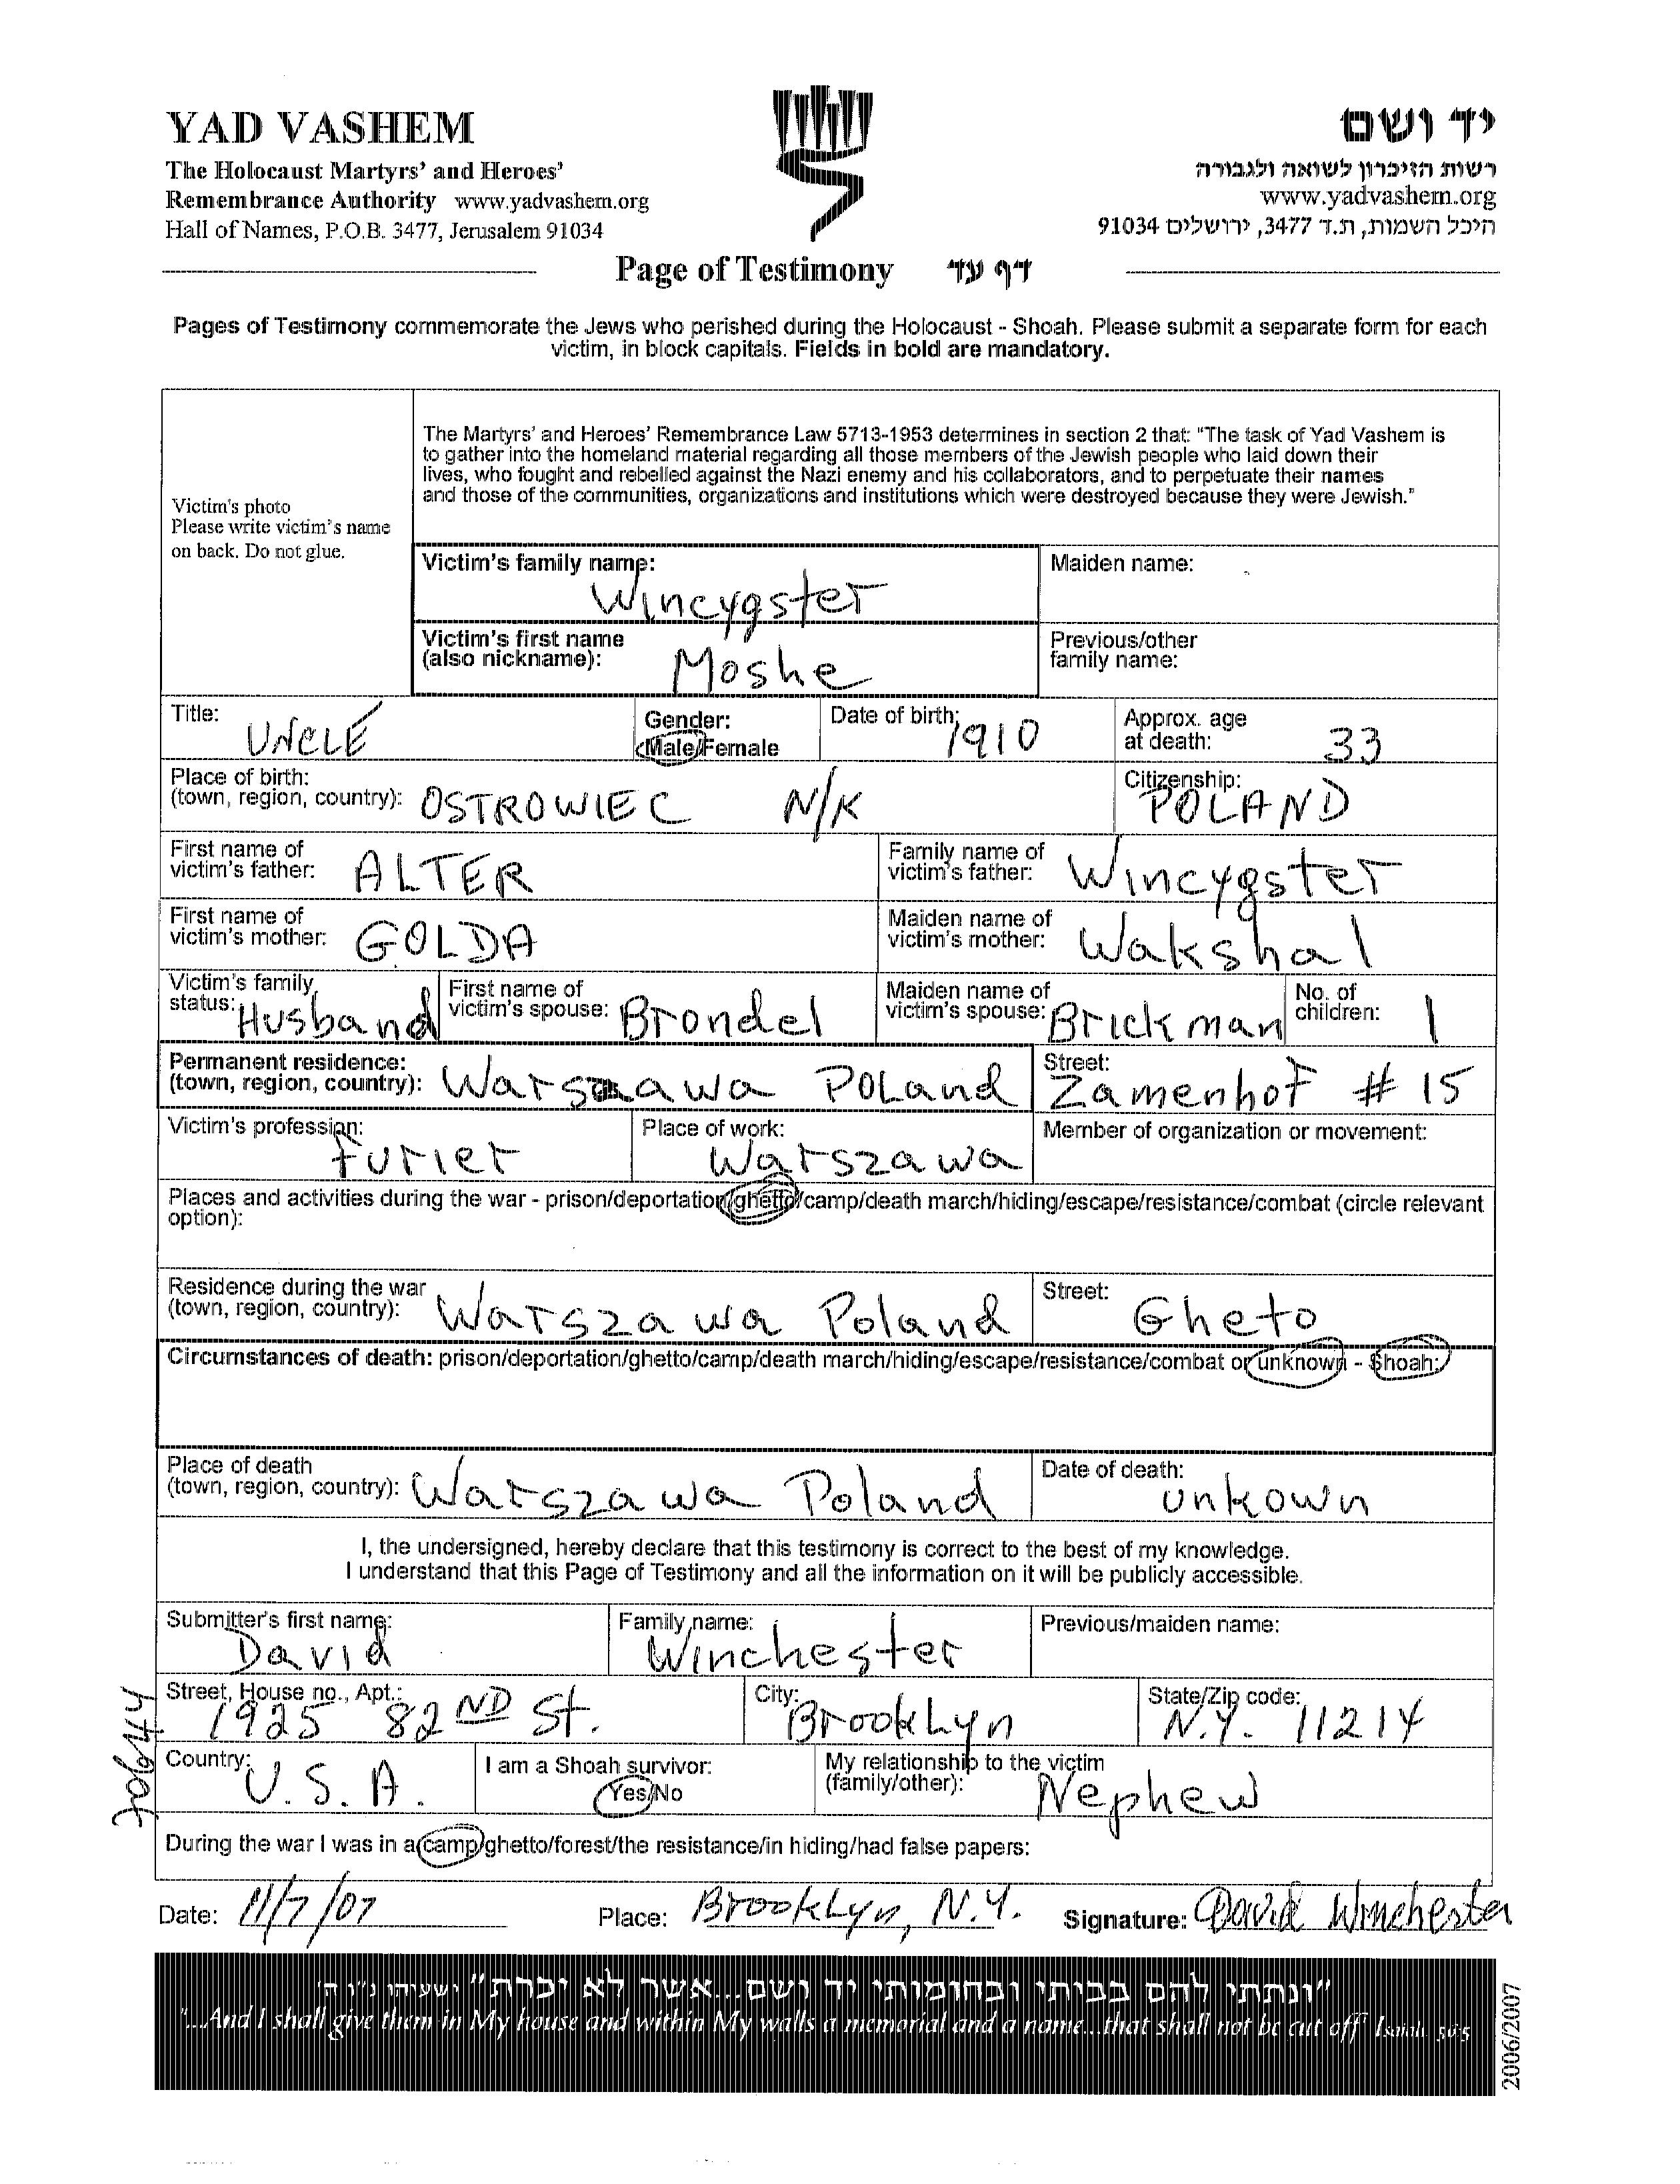 YAD VASHEM
The Holocaust Martyrs' and Heroes'
Remembrance Authority www.yadvashem.org
Hall of Names, P.O.B. 3477, Jerusalem 91034
יד ושם
רשות הזיכרון לשואה ולגבורה
www.yadvashem.org
היכל השמות, ת.ד 3477, ירושלים 91034
Page of Testimony דף עד
Pages of Testimony commemorate the Jews who perished during the Holocaust - Shoah. Please submit a separate form for each
victim, in block capitals. Fields in bold are mandatory.
Victim's photo
Please write victim's name
on back. Do not glue.
The Martyrs' and Heroes' Remembrance Law 5713-1953 determines in section 2 that: "The task of Yad Vashem is
to gather into the homeland material regarding all those members of the Jewish people who laid down their
lives, who fought and rebelled against the Nazi enemy and his collaborators, and to perpetuate their names
and those of the communities, organizations and institutions which were destroyed because they were Jewish."
Victim's family name: Wincygster
Maiden name:
Victim's first name
(also nickname): Moshe
Previous/other
family name:
Title: UNCLE
Gender:
Male/Female
Date of birth: 1910
Approx. age
at death: 33
Place of birth:
(town, region, country): OSTROWIEC N/K
Citizenship: POLAND
First name of
victim's father: ALTER
Family name of
victim's father: Wincygster
First name of
victim's mother: GOLDA
Maiden name of
victim's mother: Wakshal
Victim's family
status: Husband
First name of
victim's spouse: Brondel
Maiden name of
victim's spouse: Brickman
No. of
children: 1
Permanent residence:
(town, region, country): Warszawa POLand
Street: Zamenhof # 15
Victim's profession: furier
Place of work: Warszawa
Member of organization or movement:
Places and activities during the war - prison/deportation/ghetto/camp/death march/hiding/escape/resistance/combat (circle relevant
option):
Residence during the war
(town, region, country): Warszawa Poland
Street: Gheto
Circumstances of death: prison/deportation/ghetto/camp/death march/hiding/escape/resistance/combat or unknown - Shoah:
Place of death
(town, region, country): Warszawa Poland
Date of death: unkown
I, the undersigned, hereby declare that this testimony is correct to the best of my knowledge.
I understand that this Page of Testimony and all the information on it will be publicly accessible.
Submitter's first name: David
Family name: Winchester
Previous/maiden name:
Street, House no., Apt.: 1925 82ND St.
City: Brooklyn
State/Zip code: N.Y. 11214
Country: U.S.A.
I am a Shoah survivor:
Yes/No
My relationship to the victim
(family/other): Nephew
During the war I was in a camp/ghetto/forest/the resistance/in hiding/had false papers:
Date: 11/7/07 Place: Brooklyn, N.Y. Signature: David Winchester
"ונתתי להם בביתי ובחומותי יד ושם...אשר לא יכרת" ישעיהו נ"ו ה'
"...And I shall give them in My house and within My walls a memorial and a name...that shall not be cut off" Isaiah 56:5
2006/2007